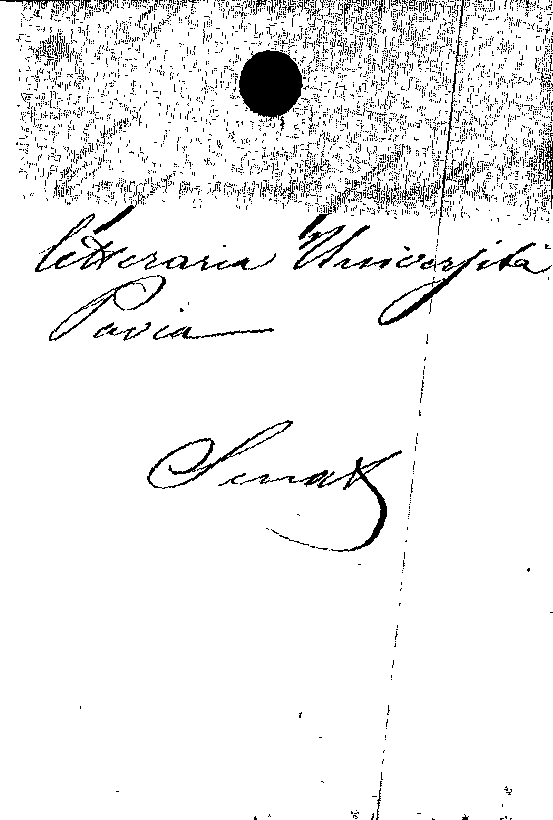 letteraria Università
Pavia
Senat